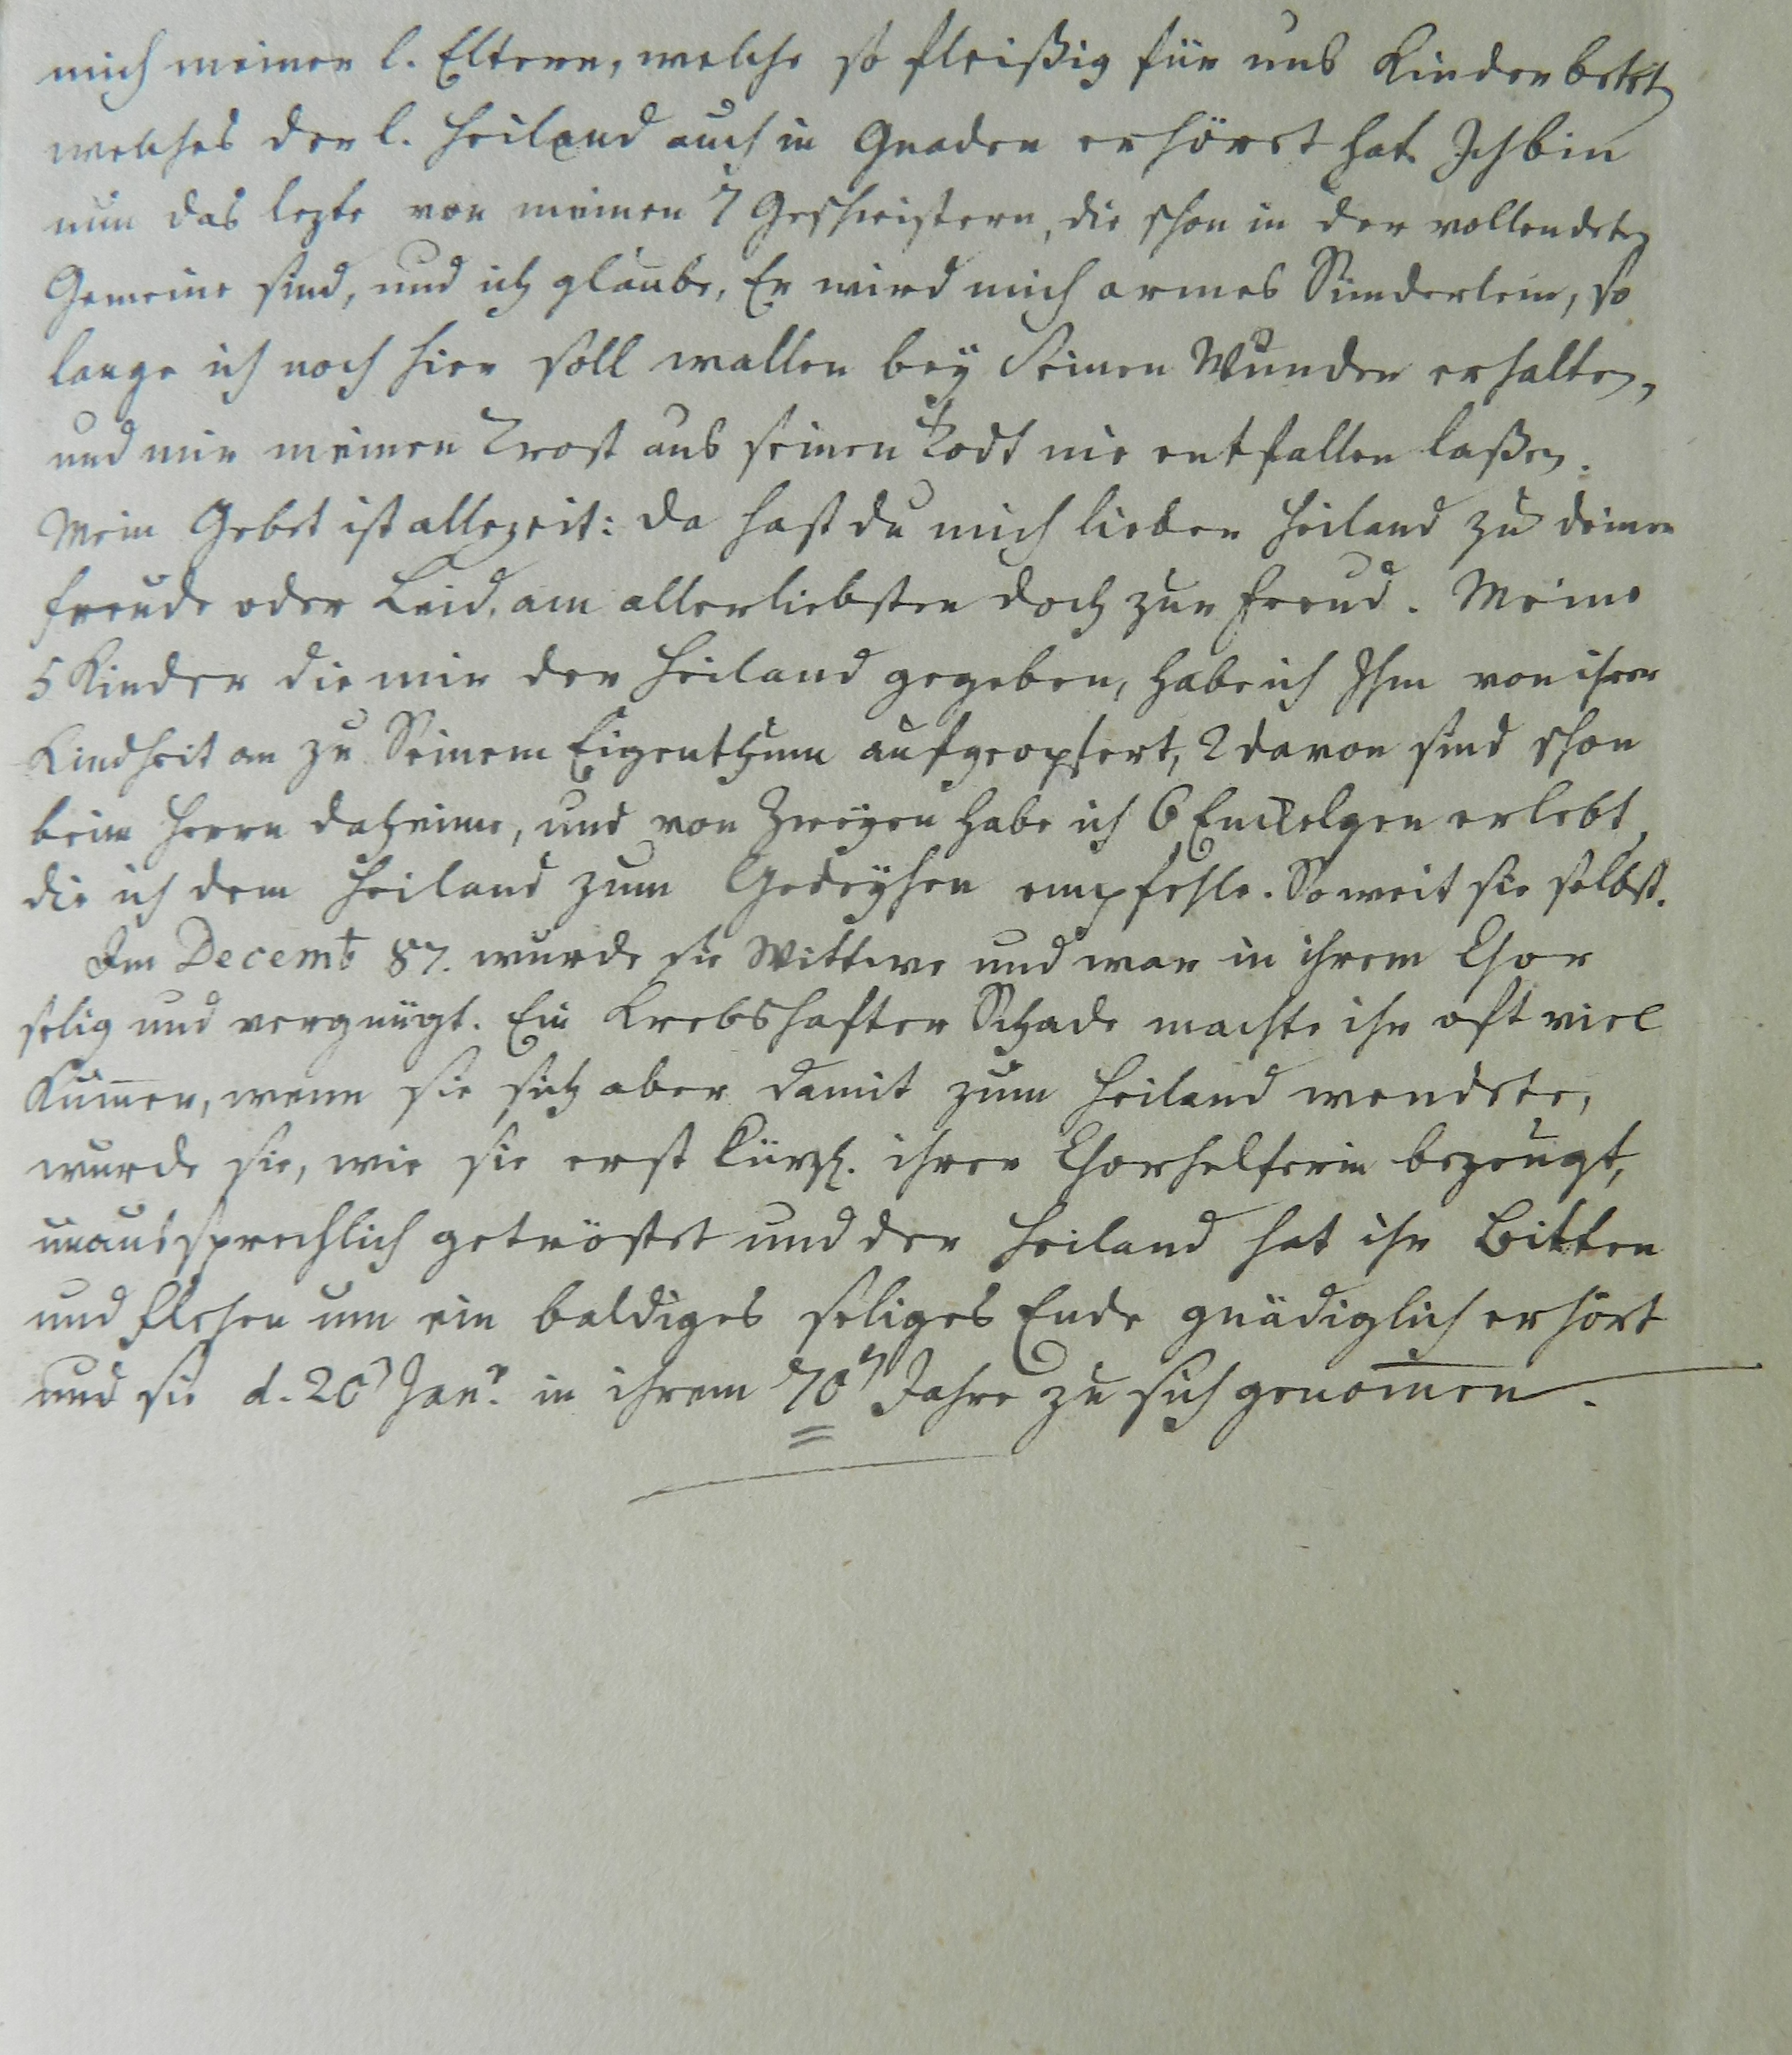 mich meiner l. Eltern, welche so fleißig für uns Kinder beteten
welches der l. Heiland auch in Gnaden erhöret hat. Ich bin
nun das lezte von meinen 7 Geschwistern, die schon in der vollendeten
Gemeine sind, und ich glaube, Er wird mich armes Sünderlein, so
lange ich noch hier soll wallen bey Seinen Wunden erhalten,
und mir meinen Trost aus seinen Todt nie entfallen laßen.
Mein Gebet ist allezeit: da hast du mich lieber Heiland zu deiner
Freude oder Leid, am allerliebsten doch zur Freud. Meine
5 Kinder die mir der Heiland gegeben, habe ich Ihm von ihrer
Kindheit an zu Seinem Eigenthum aufgeopfert, 2 davon sind schon
beim Herrn daheime, und von Zweyen habe ich 6 Enckelgen erlebt,
die ich dem Heiland zum Gedeyhen empfehle. So weit sie selbst.
Im Decemb 87. wurde sie Wittwe und war in ihrem Chor
selig und vergnügt. Ein Krebshafter Schade machte ihr oft viel
Kum̅er, wenn sie sich aber damit zum Heiland wendete,
wurde sie, wie sie erst kürzl. ihrer Chorhelferin bezeugt,
unaussprechlich getröstet und der Heiland hat ihr Bitten
und Flehen um ein baldiges seliges Ende gnädiglich erhört
und sie d. 20 Janr. in ihrem 70n Jahre zu sich genom̅en.